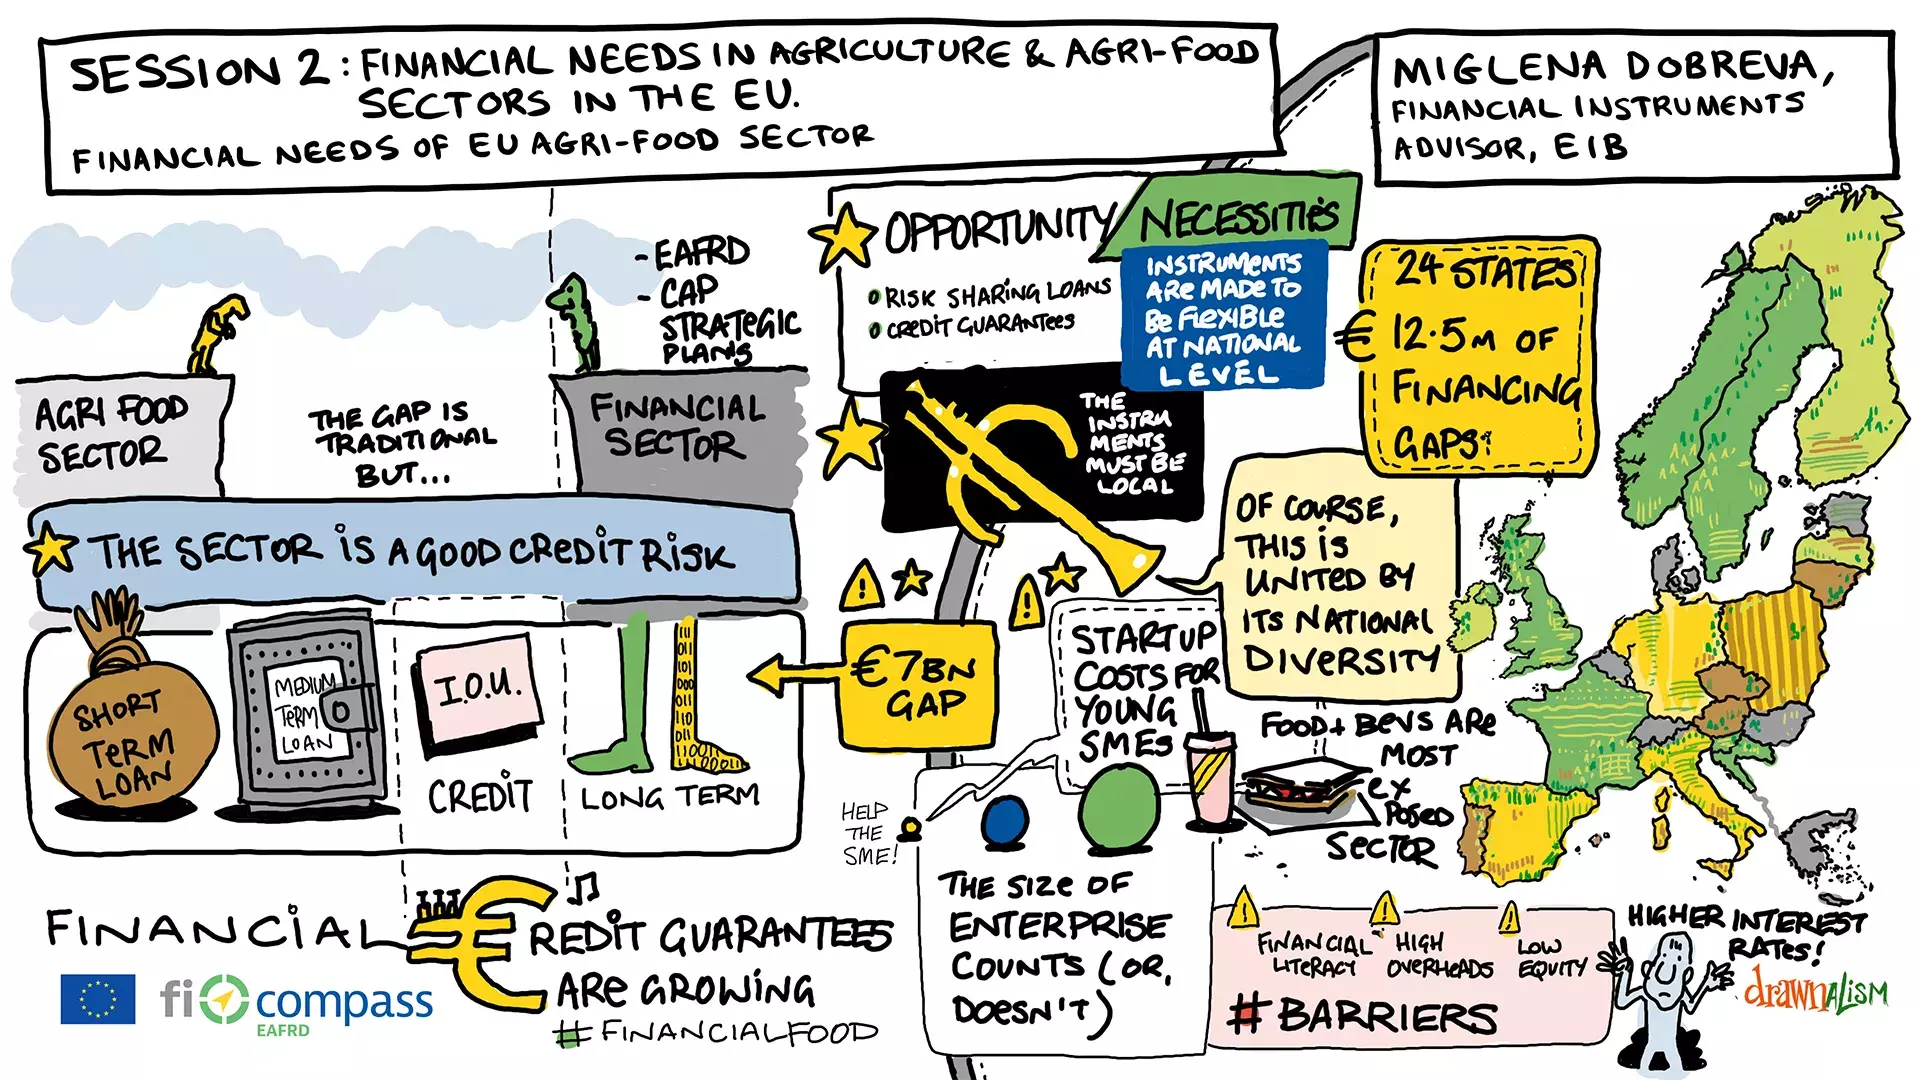 SESSION 2: FINANCIAL NEEDS IN AGRICULTURE & AGRI-FOOD
SECTORS IN THE EU.
FINANCIAL NEEDS OF EU AGRI-FOOD SECTOR
MIGLENA DOBREVA,
FINANCIAL INSTRUMENTS
ADVISOR, EIB
- EAFRD
- CAP
STRATEGIC
PLANS
AGRI FOOD
SECTOR
THE GAP IS
TRADITIONAL
BUT...
FINANCIAL
SECTOR
THE SECTOR IS A GOOD CREDIT RISK
SHORT
TERM
LOAN
MEDIUM
TERM
LOAN
I.O.U.
CREDIT
LONG TERM
€7BN
GAP
OPPORTUNITY
RISK SHARING LOANS
CREDIT GUARANTEES
NECESSITIES
INSTRUMENTS
ARE MADE TO
BE FLEXIBLE
AT NATIONAL
LEVEL
24 STATES
€ 12.5M OF
FINANCING
GAPS!
THE
INSTRU
MENTS
MUST BE
LOCAL
OF COURSE,
THIS IS
UNITED BY
ITS NATIONAL
DIVERSITY
STARTUP
COSTS FOR
YOUNG
SMES
FOOD + BEVS ARE
MOST
EX
POSED
SECTOR
HELP
THE
SME!
THE SIZE OF
ENTERPRISE
COUNTS (OR,
DOESN'T)
FINANCIAL
LITERACY
HIGH
OVERHEADS
LOW
EQUITY
# BARRIERS
HIGHER INTEREST
RATES!
FINANCIAL
€REDIT GUARANTEES
ARE GROWING
#FINANCIALFOOD
fi compass
EAFRD
drawnalism